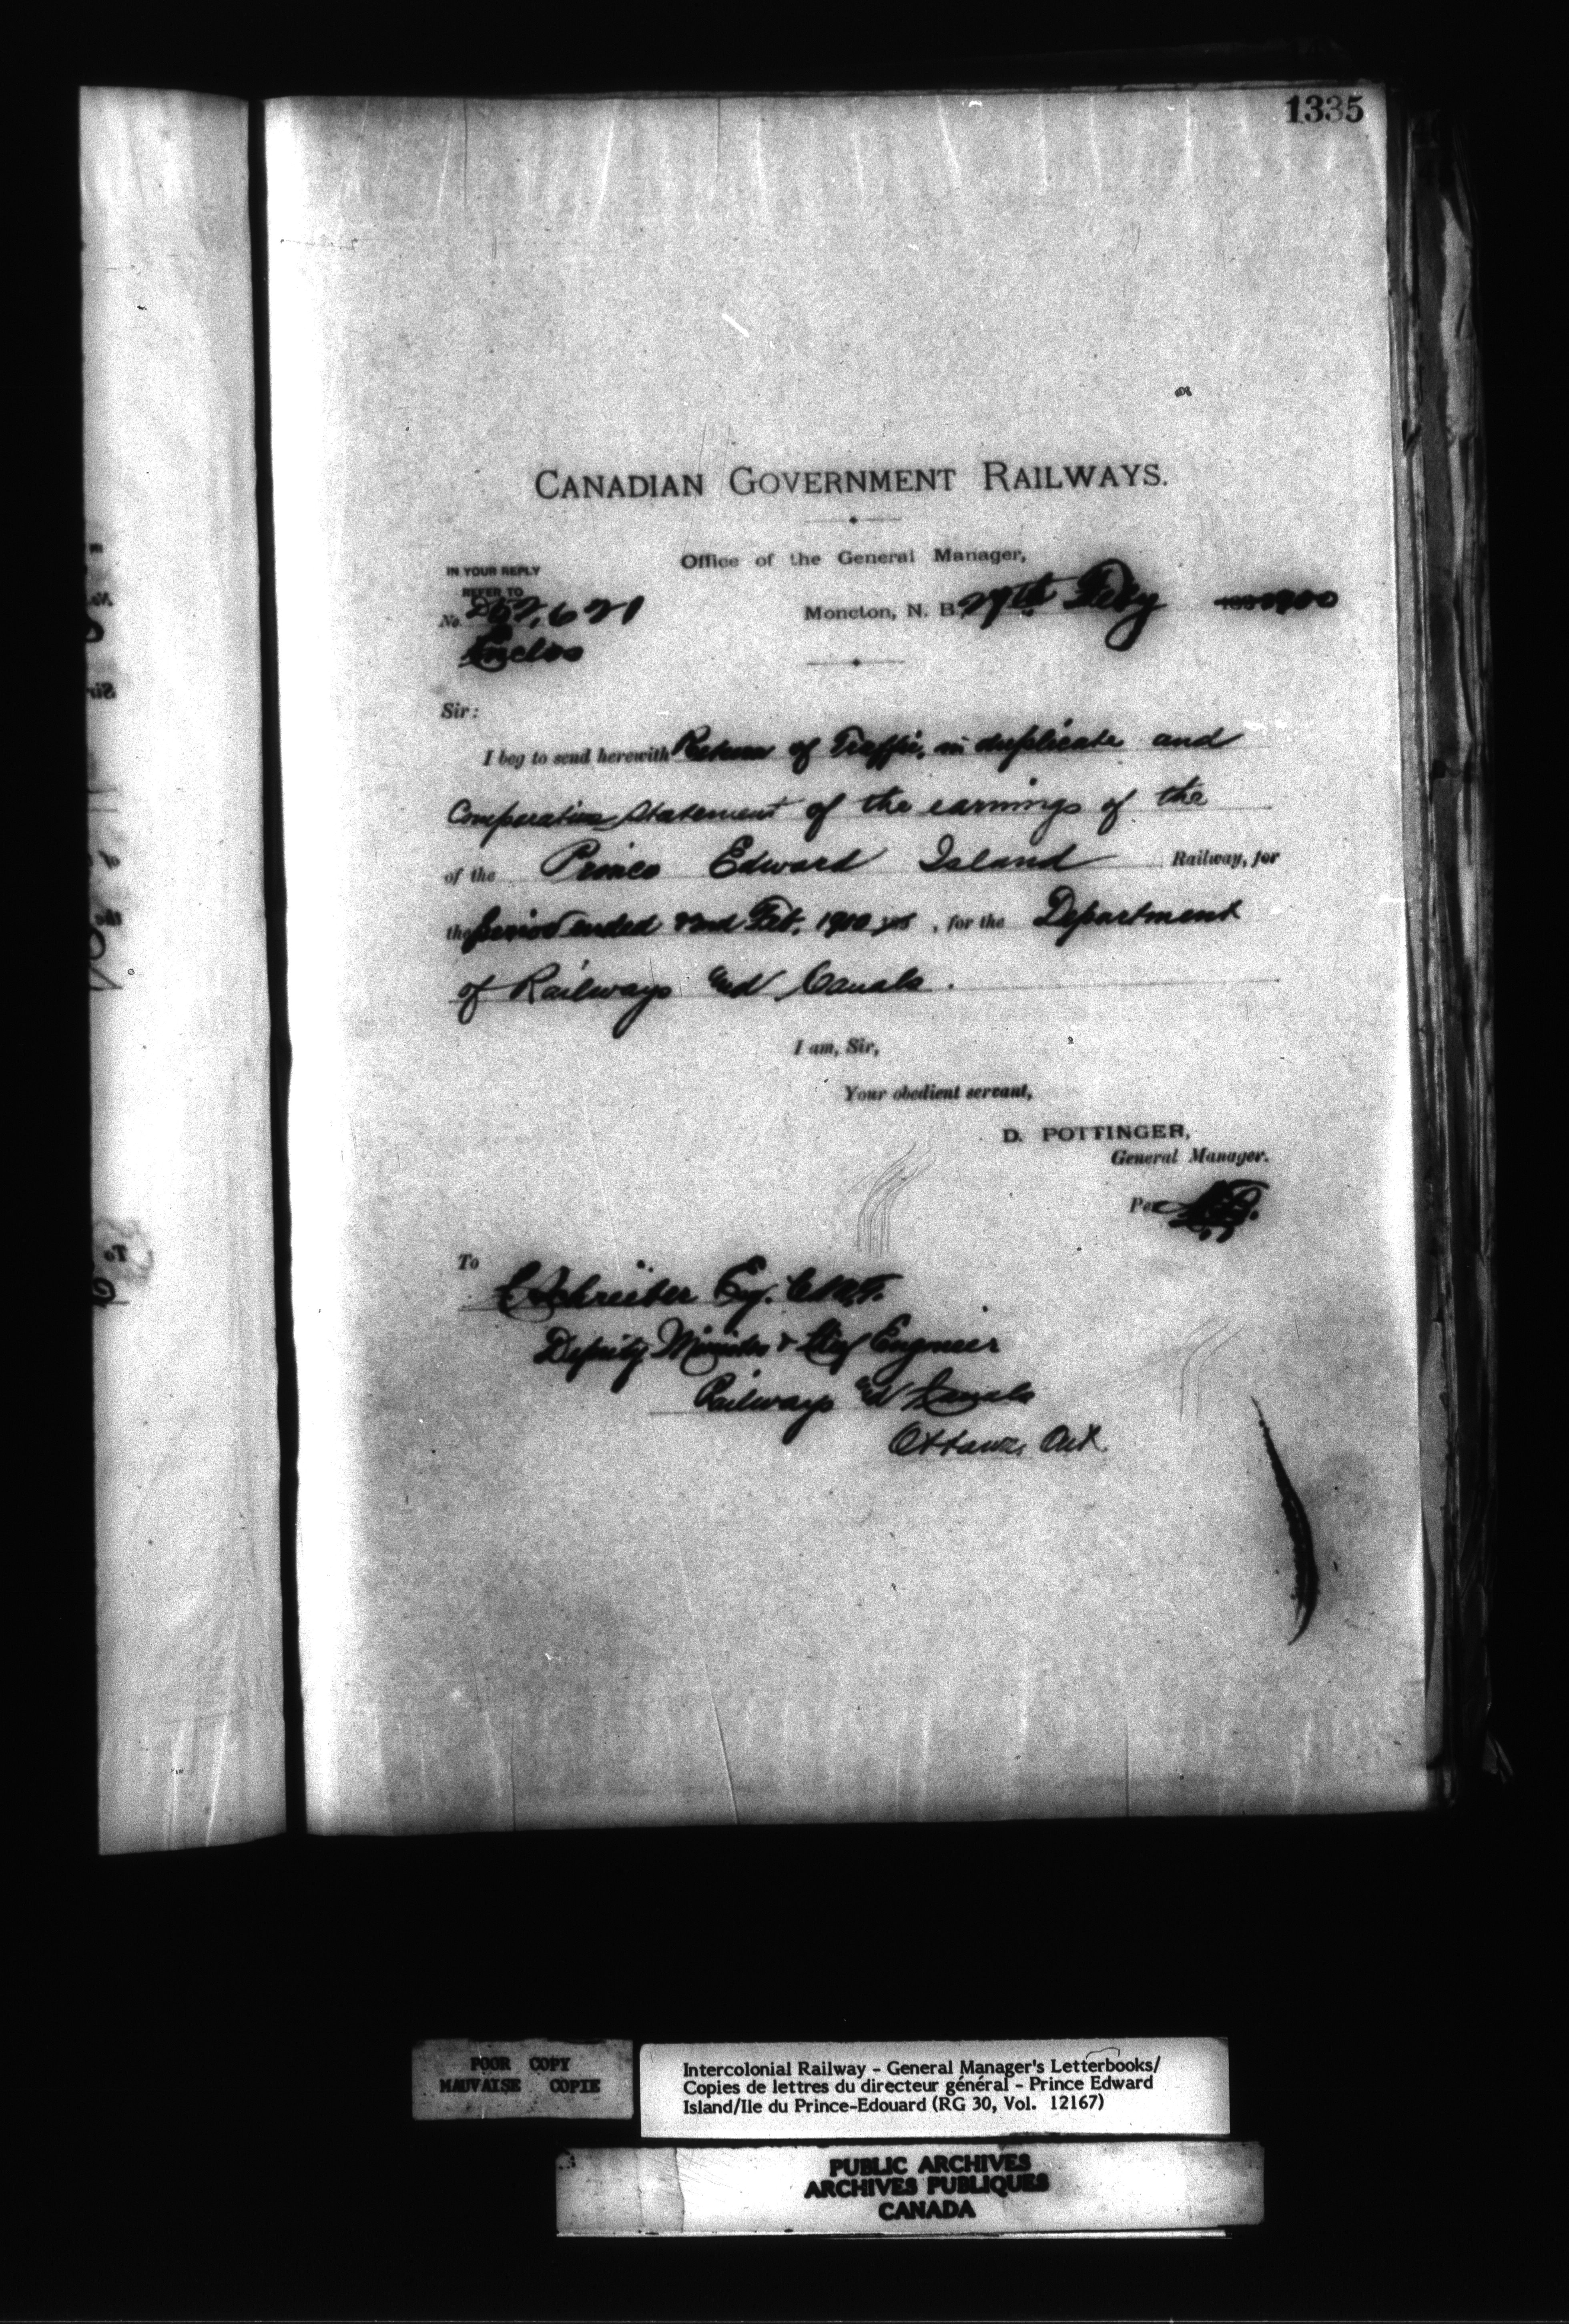 1335
CANADIAN GOVERNMENT RAILWAYS.
Office of the General Manager,
IN YOUR REPLY
REFER TO
No.
Moncton, N. B. 27th Feby 1900
Enclos
Sir:
I beg to send herewith Return of Traffic, in duplicate and
Comparative Statement of the earnings of the
of the Prince Edward Island Railway, for
the period ended 22nd Feb. , for the Department
of Railways and Canals.
I am, Sir,
Your obedient servant,
D. POTTINGER,
General Manager.
Per
To
C Schreiber Esq. C.M.G.
Deputy Minister & Chief Engineer
Railways and Canals
Ottawa, Ont.
POOR COPY
MAUVAISE COPIE
Intercolonial Railway - General Manager's Letterbooks/
Copies de lettres du directeur général - Prince Edward
Island/Ile du Prince-Edouard (RG 30, Vol. 12167)
PUBLIC ARCHIVES
ARCHIVES PUBLIQUES
CANADA